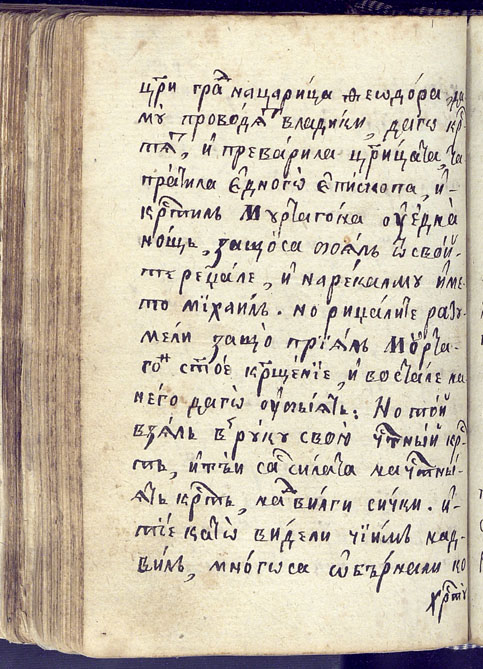 цр҃и гра́ нацари́ца ѳеѡдо́ра да
мꙋ̀ проводѧ́т владики, даго кр҇
тѧт, и҆ превари́ла цр҃и́цата, та
пра́тила є҆дного̀ є҆пископа, и҆-
кр҇тилъ Мꙋртаго́на ꙋ҆ є҆дна̀
но́щь, защо́са боѧ́лъ ѿ свои҆-
те рица́ле, и҆ нарекалмꙋ и҆ме
то мїхаи́лъ. но рица́лите разꙋ-
мели защо̀ прїѧ́лъ Мꙋрта-
гон ст҃о́е кр҃ще́нїе, и҆ востале на
не́го даго̀ ꙋ҆бїѧ́тъ: Но то́й
взѧ́лъ в рꙋ́кꙋ свою̀ чⷭ҇тны́й кр҇
тъ, и҆тъи са си́лата на чⷭ҇тны́-
ѧтъ кр҇тъ, надви́лги си́чки. и҆-
тїе като̀ ви́дели чї и҆мъ над-
ви́лъ, мно́госа ѡ҆бъ́рнали ко
хр҇тꙋ̀